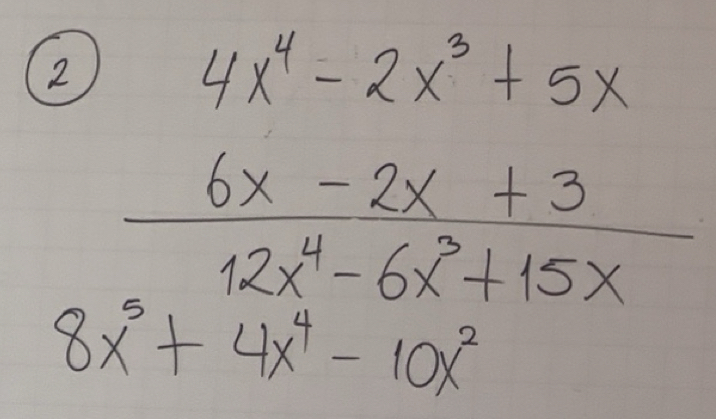 2 4x⁴ - 2x³ + 5x
6x - 2x + 3
12x⁴ - 6x³ + 15x
8x⁵ + 4x⁴ - 10x²